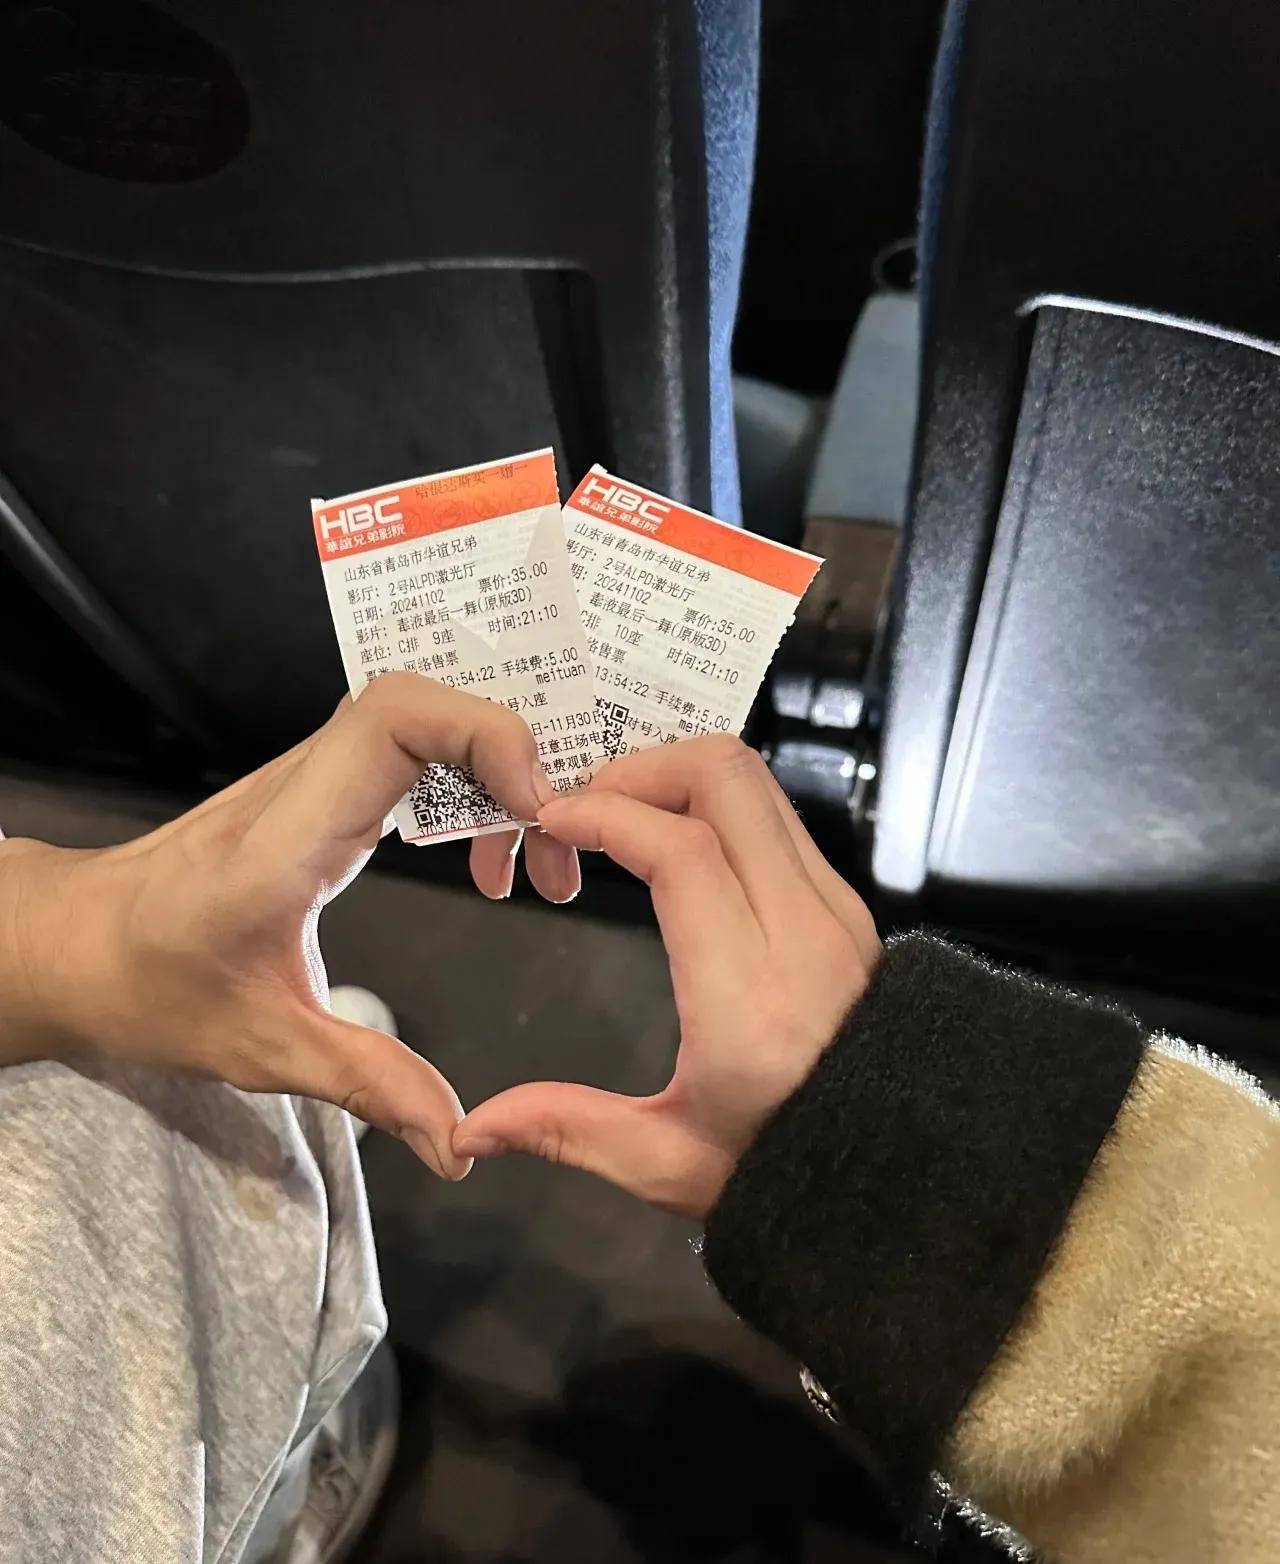 哈根达斯买一赠一
HBC
華誼兄弟影院
山东省青岛市华谊兄弟
影厅: 2号ALPD激光厅
日期: 20241102 票价:35.00
影片: 毒液最后一舞(原版3D)
座位: C排 9座 时间:21:10
网络售票
13:54:22 手续费:5.00
meituan
对号入座
日-11月30日
任意五场电
免费观影一
仅限本人
HBC
華誼兄弟影院
山东省青岛市华谊兄弟
影厅: 2号ALPD激光厅
期: 20241102 票价:35.00
毒液最后一舞(原版3D)
C排 10座 时间:21:10
络售票
13:54:22 手续费:5.00
对号入座